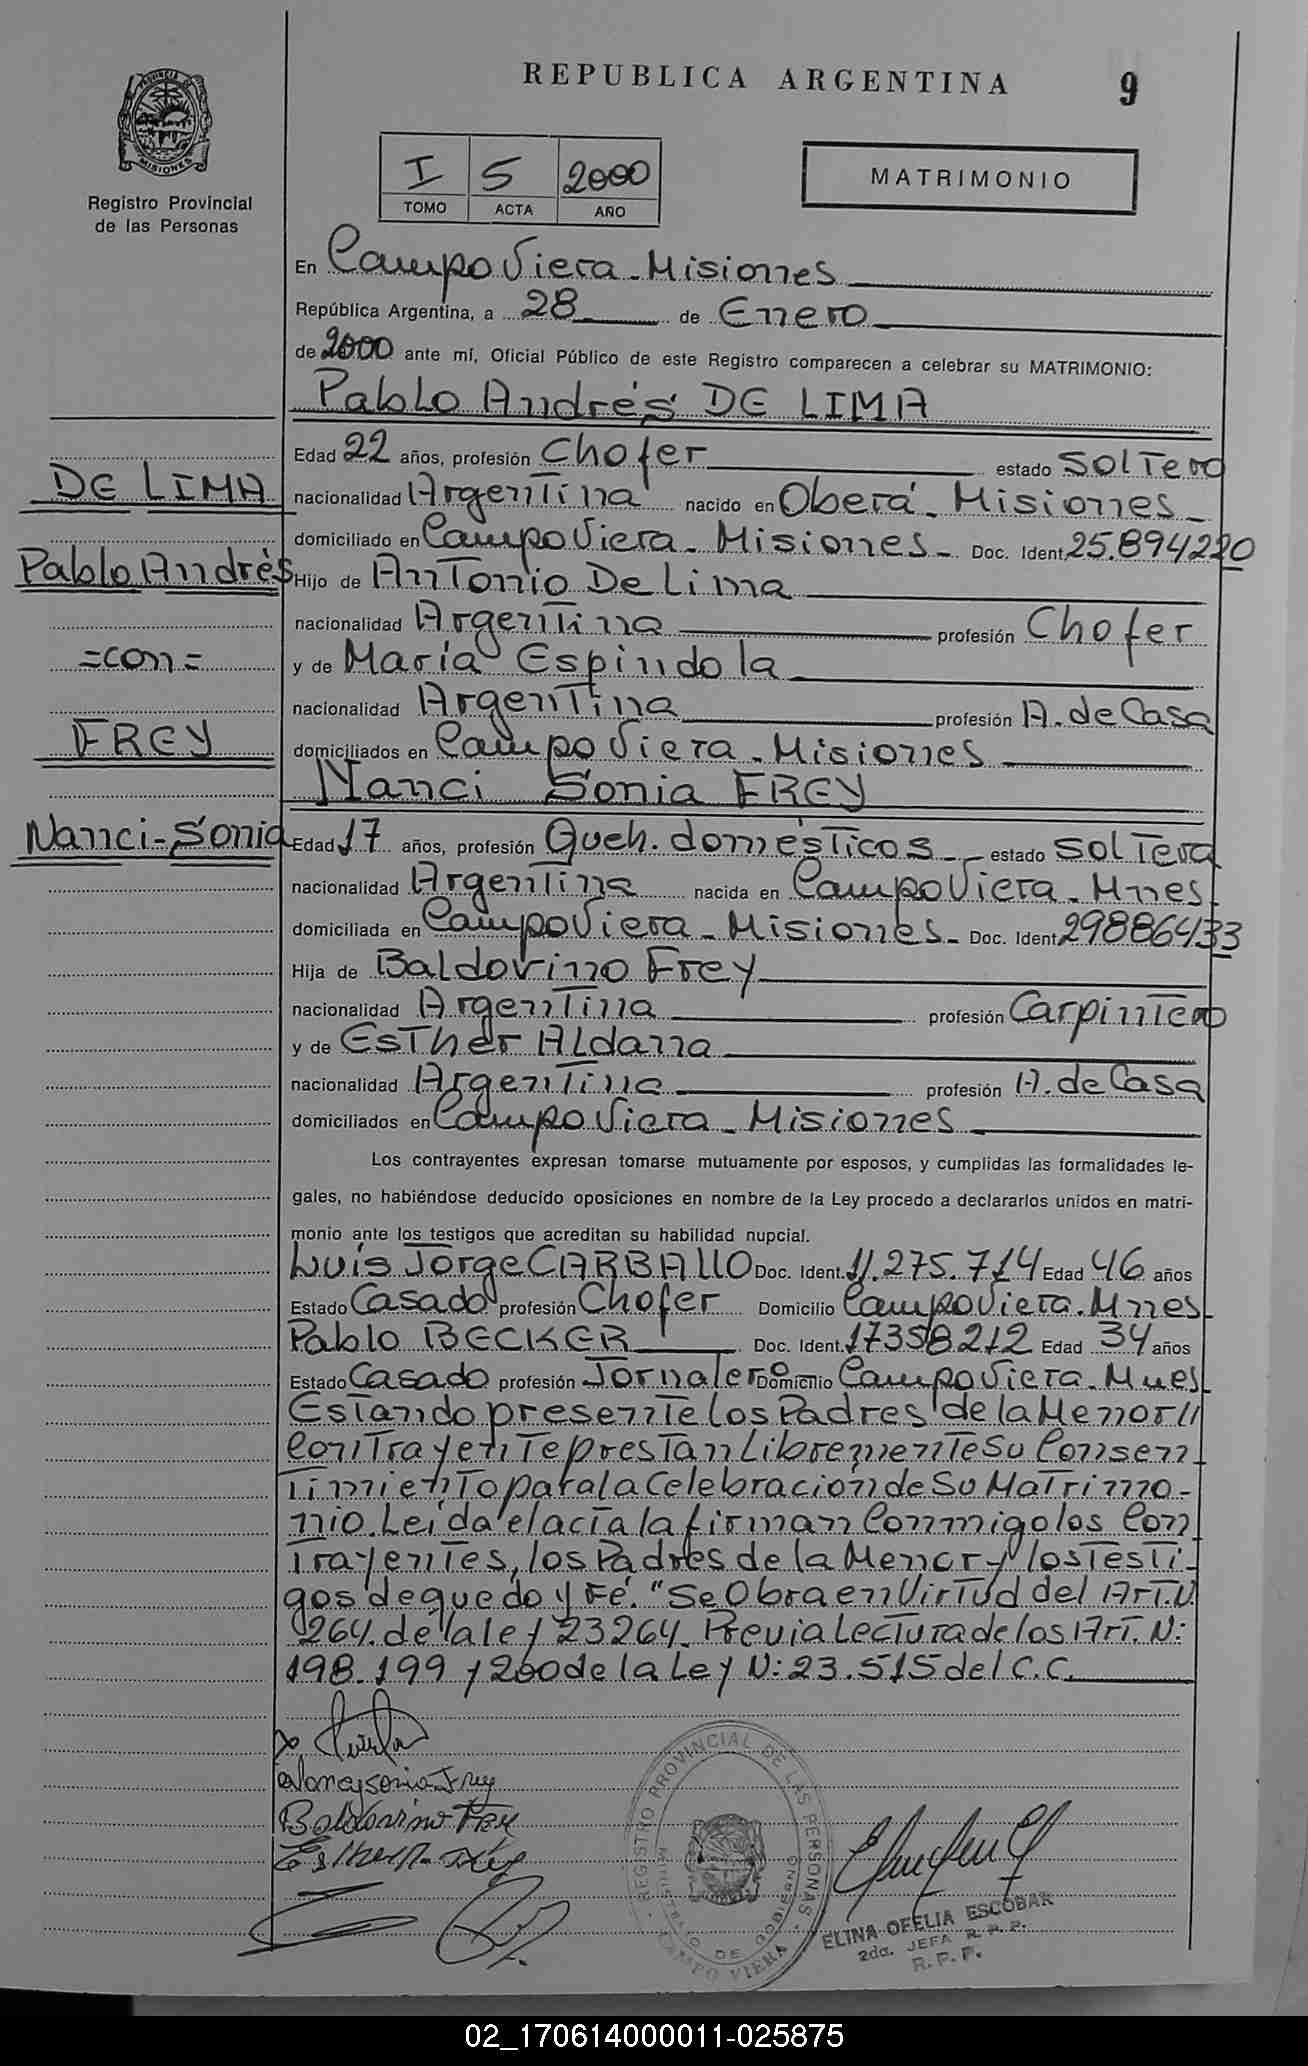 REPUBLICA ARGENTINA
9
PROVINCIA DE MISIONES
Registro Provincial
de las Personas
I 5 2000
TOMO ACTA AÑO
MATRIMONIO
En Campo Viera - Misiones
República Argentina, a 28 de Enero
de 2000 ante mí, Oficial Público de este Registro comparecen a celebrar su MATRIMONIO:
Pablo Andrés DE LIMA
Edad 22 años, profesión Chofer estado Soltero
DE LIMA
nacionalidad Argentina nacido en Oberá - Misiones -
domiciliado en Campo Viera - Misiones - Doc. Ident. 25.894220
Pablo Andrés
Hijo de Antonio De Lima
nacionalidad Argentina profesión Chofer
=con=
y de María Espindola
nacionalidad Argentina profesión A. de Casa
FREY
domiciliados en Campo Viera - Misiones
Nanci Sonia FREY
Nanci - Sonia
Edad 17 años, profesión Queh. domésticos - estado Soltera
nacionalidad Argentina nacida en Campo Viera - Mnes.
domiciliada en Campo Viera - Misiones - Doc. Ident. 29886433
Hija de Baldovino Frey
nacionalidad Argentina profesión Carpintero
y de Esther Aldana
nacionalidad Argentina profesión A. de Casa
domiciliados en Campo Viera - Misiones
Los contrayentes expresan tomarse mutuamente por esposos, y cumplidas las formalidades le-
gales, no habiéndose deducido oposiciones en nombre de la Ley procedo a declararlos unidos en matri-
monio ante los testigos que acreditan su habilidad nupcial.
Luis Jorge CARBALLO Doc. Ident. 11.275.714 Edad 46 años
Estado Casado profesión Chofer Domicilio Campo Viera. Mnes
Pablo BECKER Doc. Ident. 17358212 Edad 34 años
Estado Casado profesión Jornalero Domicilio Campo Viera. Mnes
Estando presente los Padres de la Menor //
Contrayente prestan Libremente Su Consen
timiento para la Celebración de Su Matrimo-
nio. Leída el acta la firman Conmigo los Con
trayentes, los Padres de la Menor y los Testi-
gos de que doy Fé. "Se Obra en Virtud del Art. N.
264. de la ley 23264. Previa Lectura de los Art. N:
198. 199 y 200 de la Ley N: 23.515 del C.C.
Nancy sonia Frey
Baldovino Frey
Esther A. Frey
REGISTRO PROVINCIAL DE LAS PERSONAS
MINISTERIO DE GOBIERNO
CAMPO VIERA
ELINA OFELIA ESCOBAR
2da. JEFA R. P. P.
R. P. P.
02_170614000011-025875